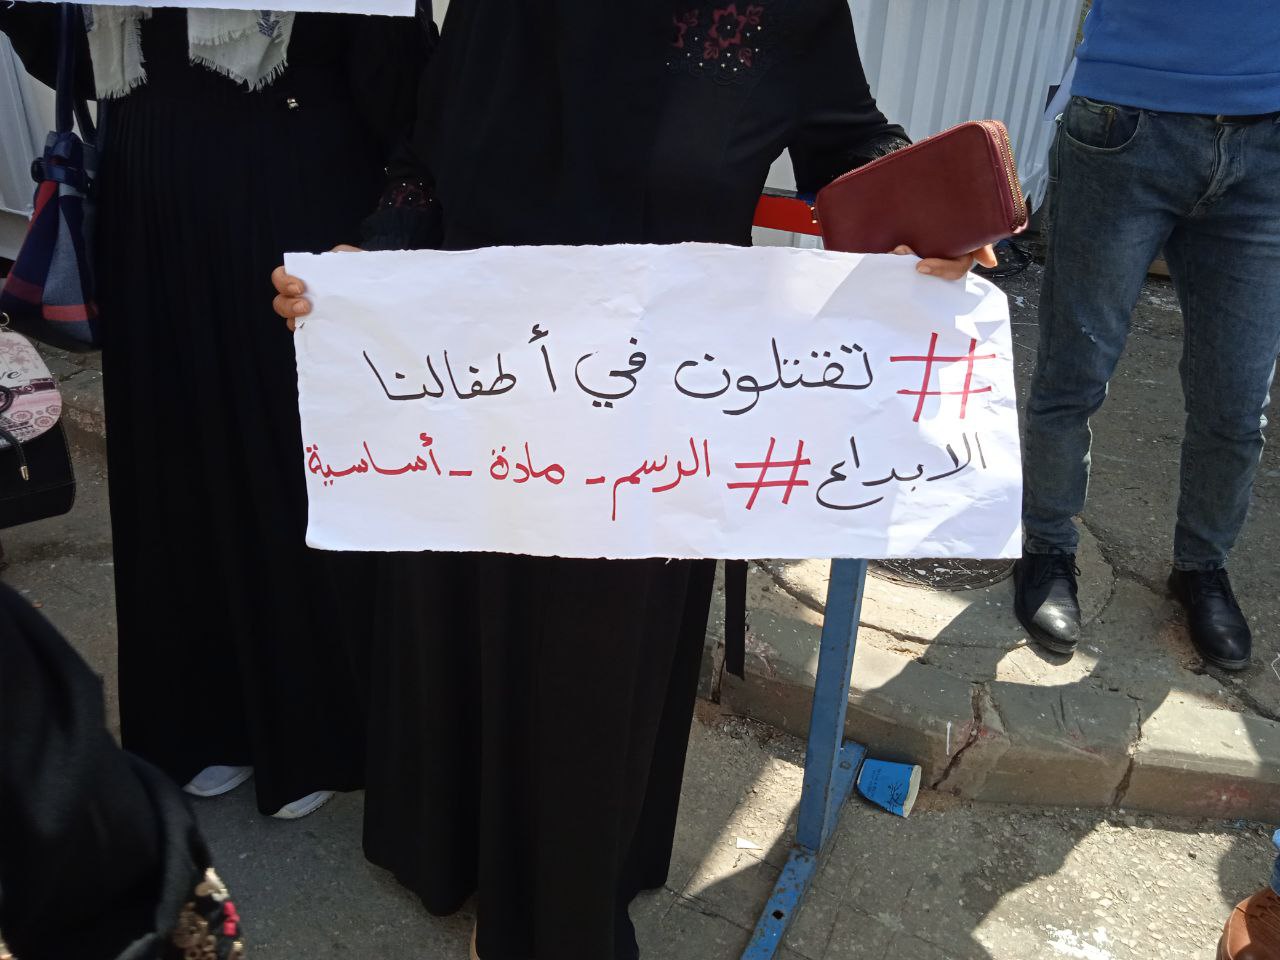 # تقتلون في أطفالنا
الابداع # الرسم - مادة - أساسية